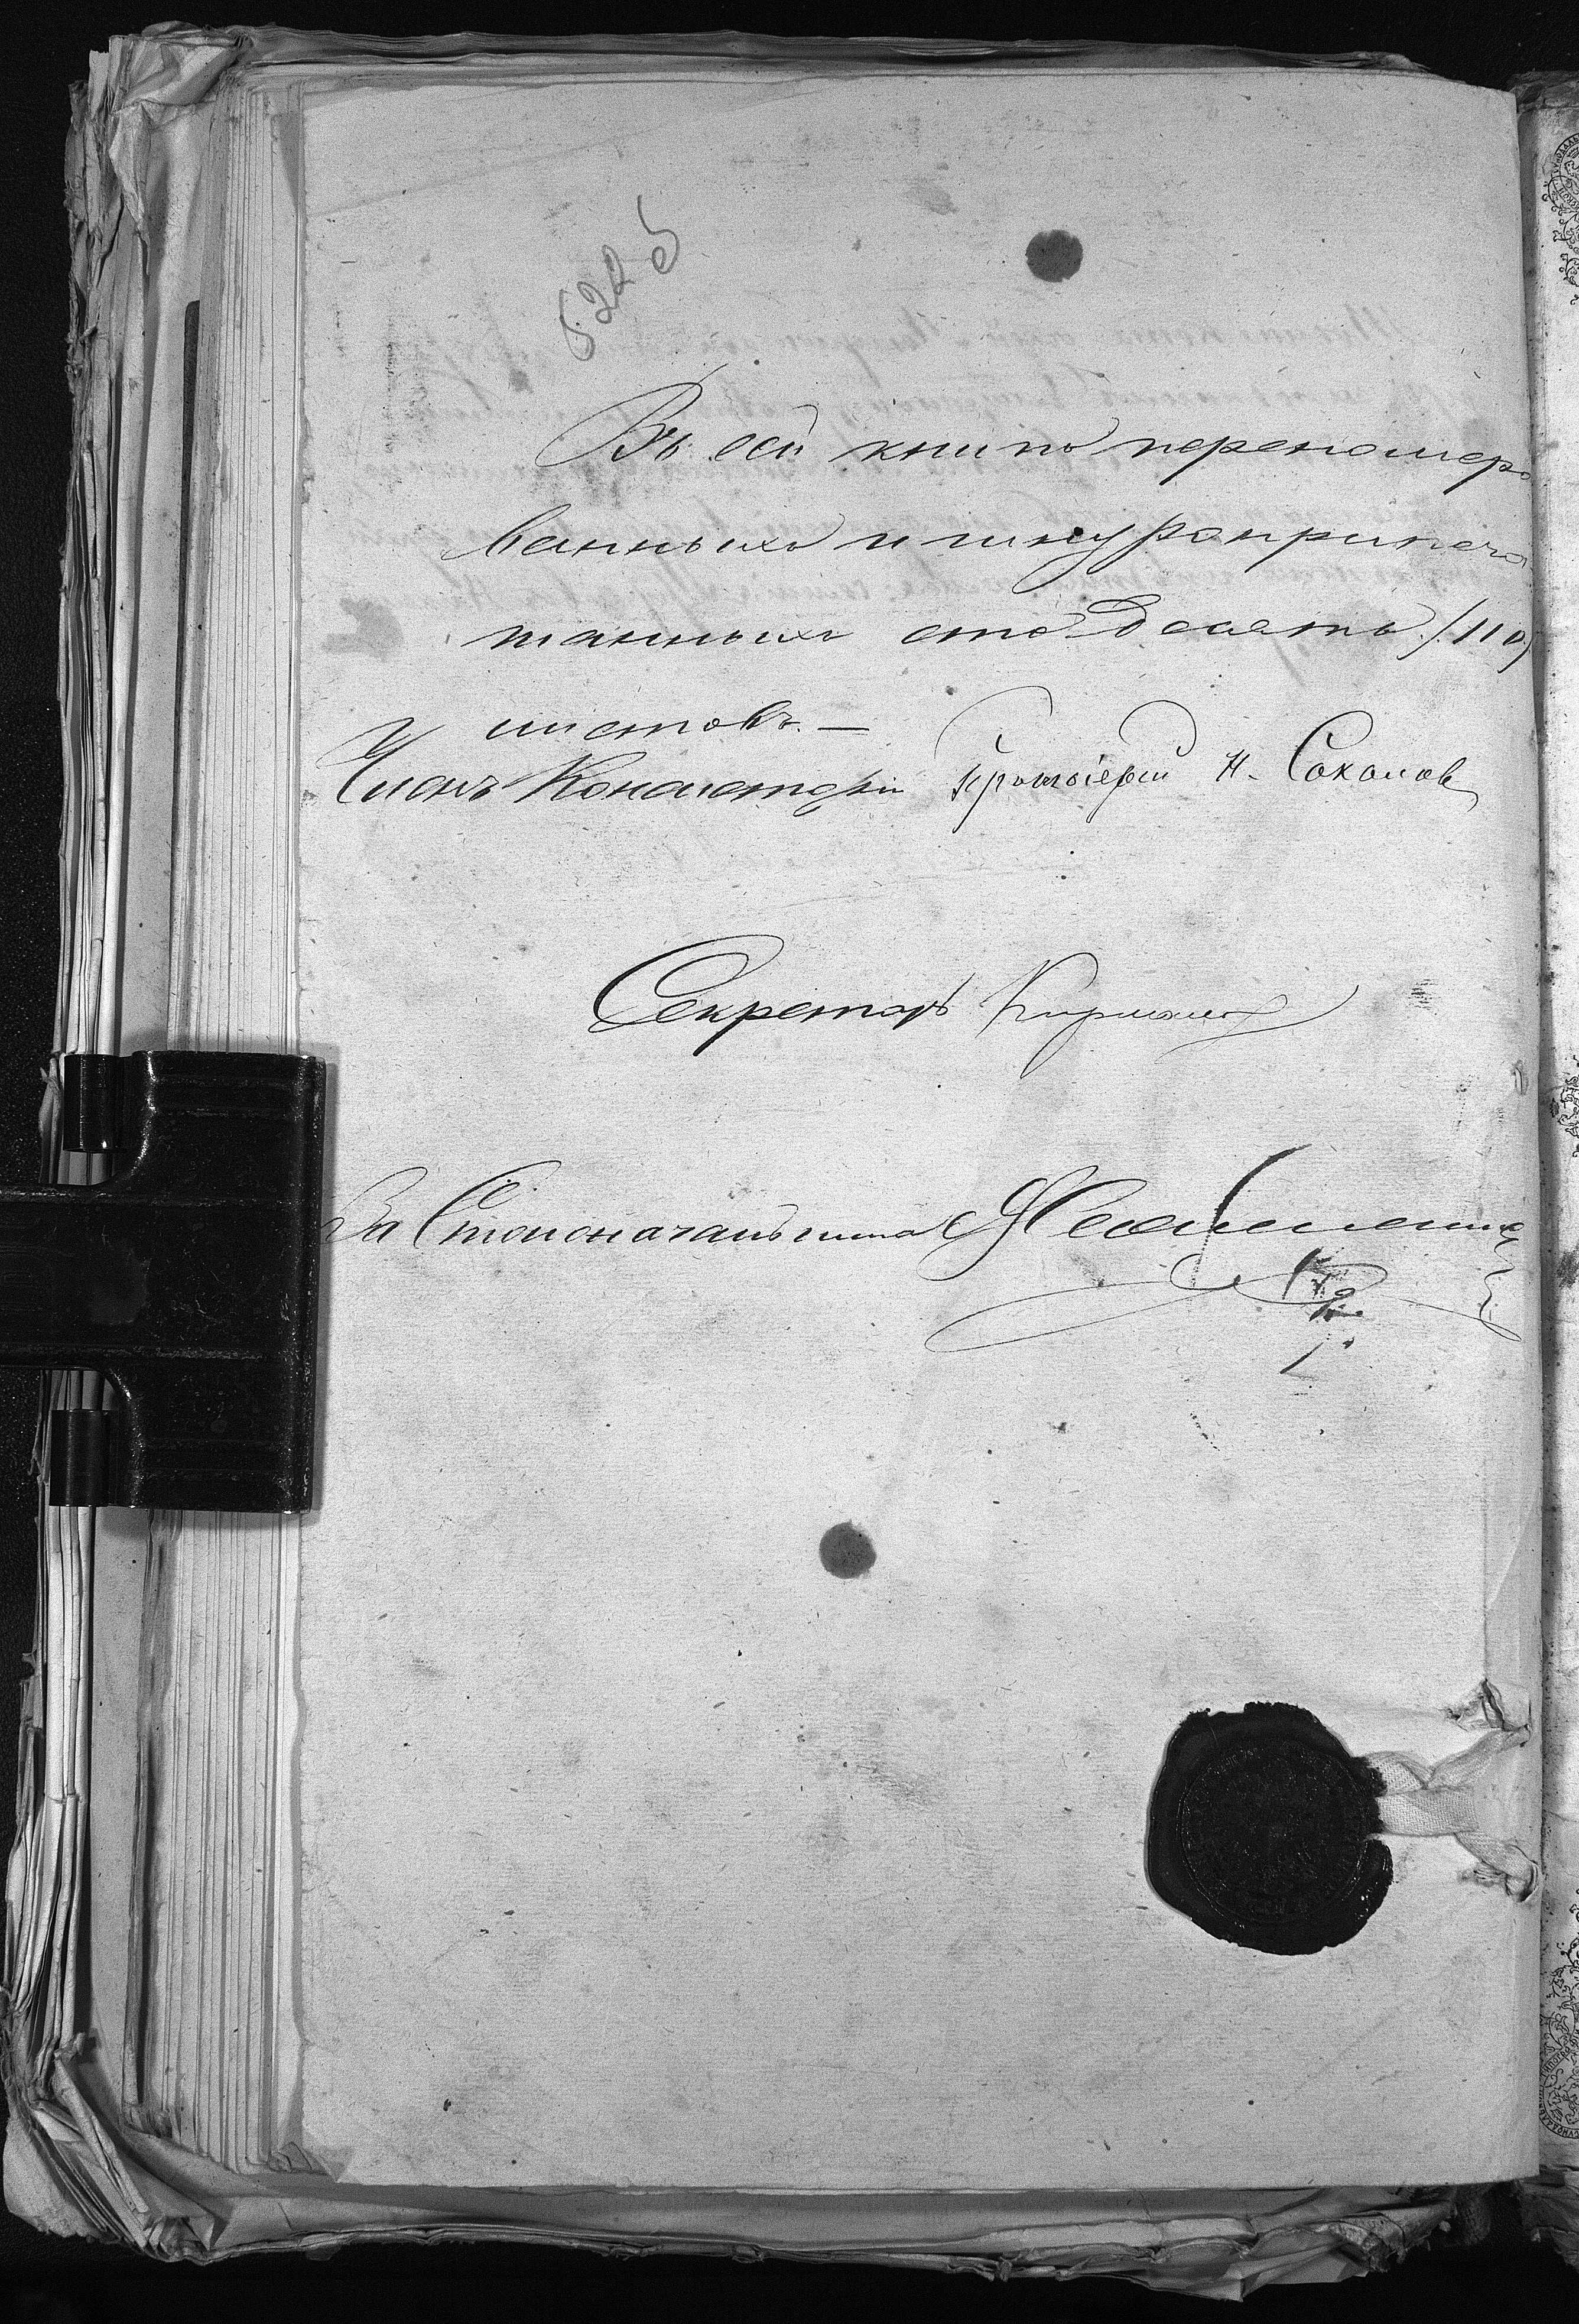 522 об
Въ сей книгѣ перенумеро
ванныхъ и шнуроприпеча
танныхъ сто десять /110/
листовъ. —
Членъ Консисторіи Протоіерей Н. Соколов
Секретарь
За Столоначальника